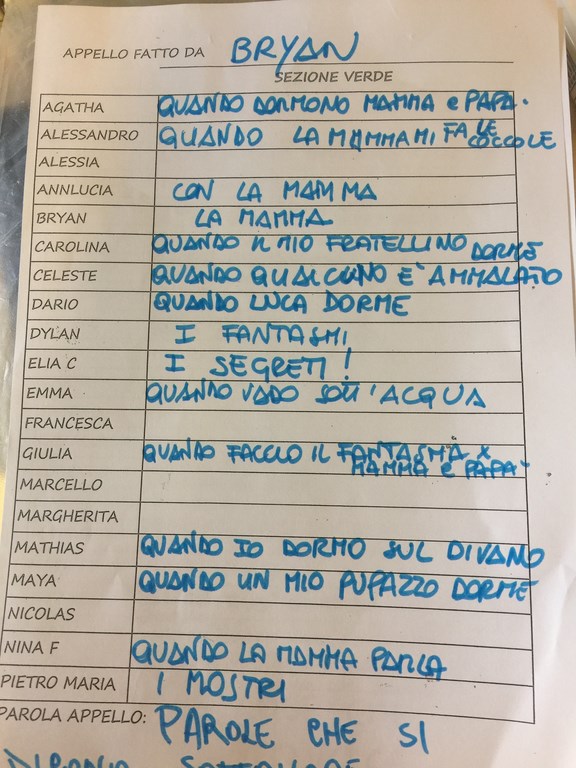 APPELLO FATTO DA BRYAN
SEZIONE VERDE
AGATHA QUANDO DORMONO MAMMA e PAPA'
ALESSANDRO QUANDO LA MAMMA MI FA LE COCCOLE
ALESSIA
ANNLUCIA CON LA MAMMA
BRYAN LA MAMMA
CAROLINA QUANDO IL MIO FRATELLINO DORME
CELESTE QUANDO QUALCUNO E' AMMALATO
DARIO QUANDO LUCA DORME
DYLAN I FANTASMI
ELIA C I SEGRETI!
EMMA QUANDO VADO SOTT'ACQUA
FRANCESCA
GIULIA QUANDO FACCIO IL FANTASMA X MAMMA e PAPA'
MARCELLO
MARGHERITA
MATHIAS QUANDO IO DORMO SUL DIVANO
MAYA QUANDO UN MIO PUPAZZO DORME
NICOLAS
NINA F QUANDO LA MAMMA PARLA
PIETRO MARIA I MOSTRI
PAROLA APPELLO: PAROLE CHE SI